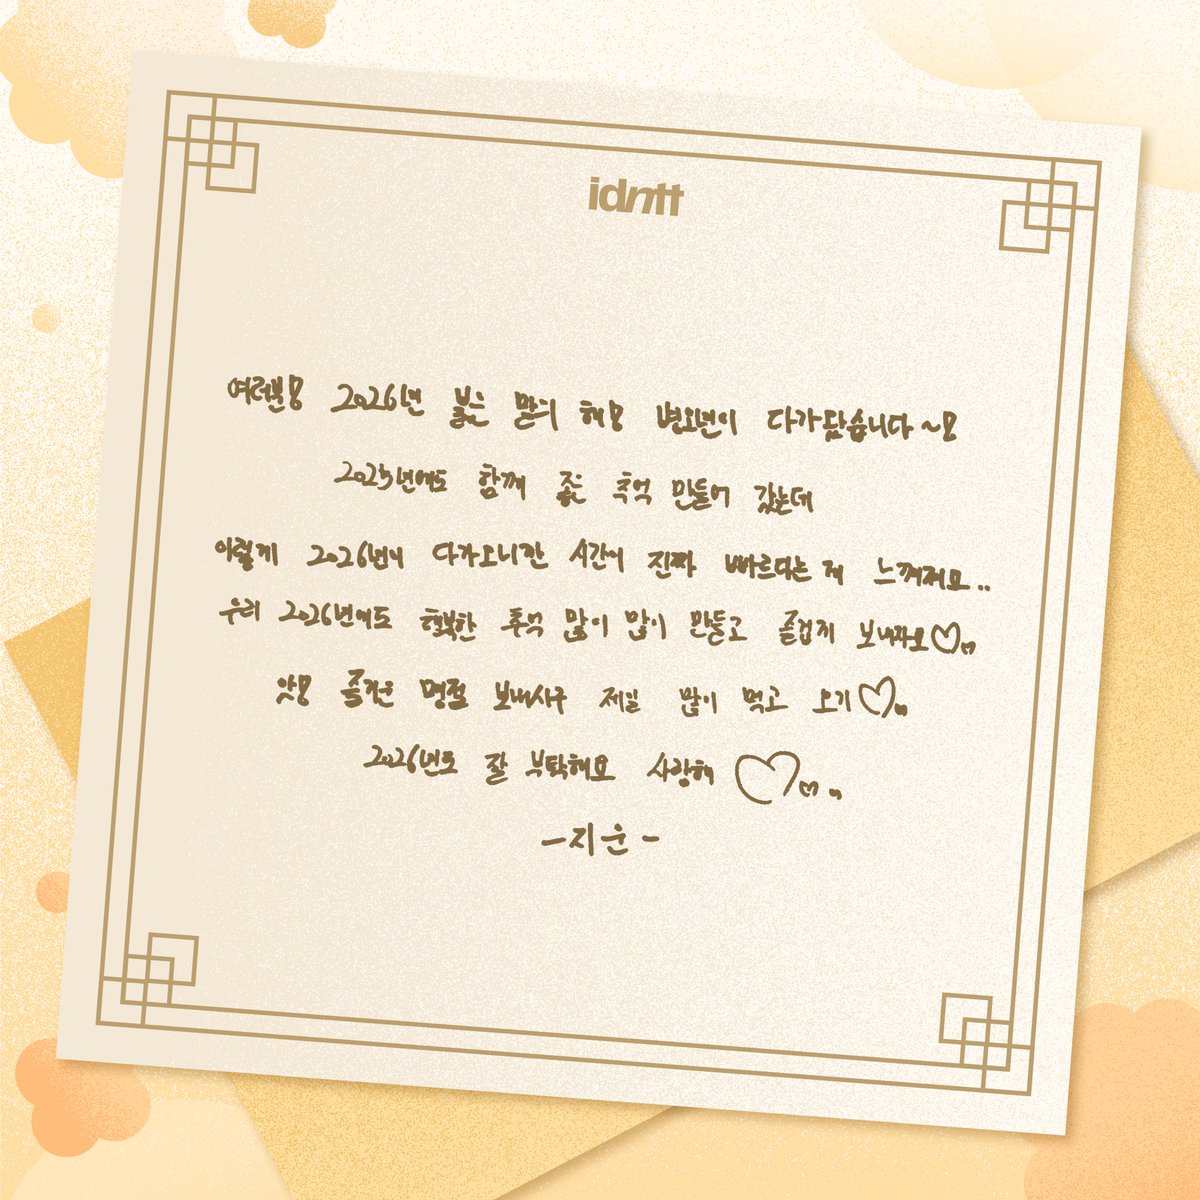 idntt
여러분! 2026년 붉은 말의 해! 병오년이 다가왔습니다~!
2025년에도 함께 좋은 추억 만들어 갔는데
이렇게 2026년이 다가오니깐 시간이 진짜 빠르다는 게 느껴져요..
우리 2026년에도 행복한 추억 많이 많이 만들고 즐겁게 보내자요♡
앗! 즐거운 명절 보내시구 제일 많이 먹고 오기♡
2026년도 잘 부탁해요 사랑해 ♡
-지운-